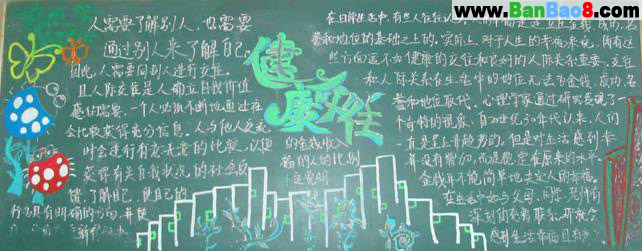 www.BanBao8.com
人需要了解别人，也需要
通过别人来了解自己。
因此，人需要同别人进行交往。
且人际交往是人确立自我价值
感的需要，一个人必须不断地通过社
会比较获得充分信息。人与他人交往
时会进行有意无意的比较，以便
获得有关自我状况的社会反
馈，了解自己，使自己的
行为具有明确的方向，并使
健康交往
的金钱收入
福的人的比例
这表明
在日常生活中，有些人往往认
成功，名
誉和地位的基础之上的。实际上，对于人生的幸福来说，所有这
些方面远不如健康的交往和良好的人际关系重要。交往
和人际关系在生活中的地位无法为金钱、成功、名
誉和地位取代。心理学家通过研究发现了一
个奇特的现象，自20世纪30年代以来，人们
一直是呈上升趋势的，但是对生活感到幸
并没有增加，而是稳定在原来的水平。
金钱并不能简单地决定人的幸福。
在生活中如与父母、同学、老师有
深刻的情感联系，那就会
感到生活幸福